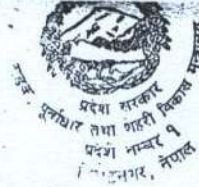 प्रदेश सरकार
पूर्वाधार तथा शहरी विकास
प्रदेश नम्बर १
नेपाल